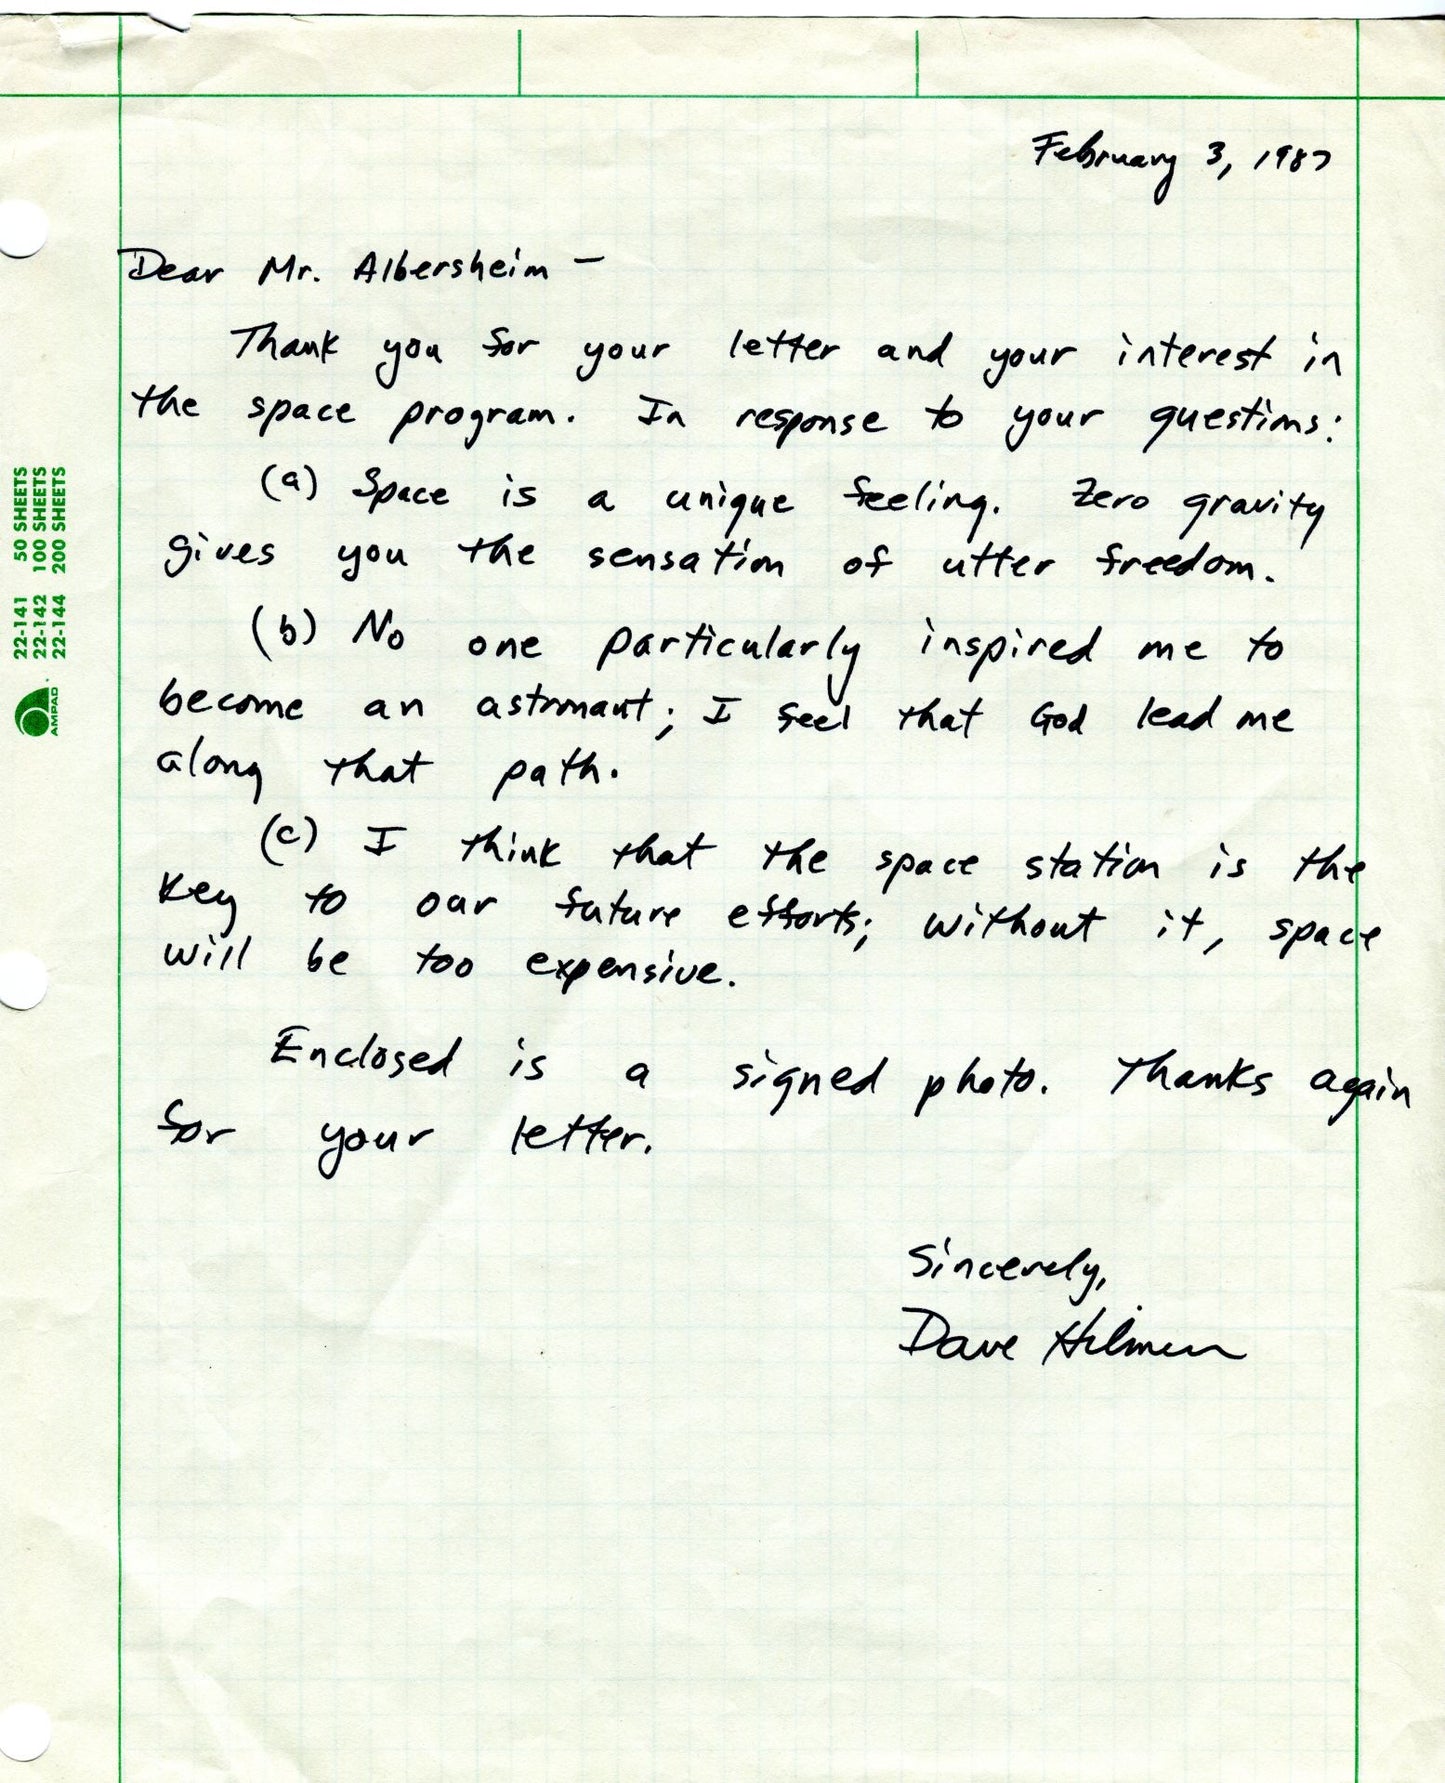 February 3, 1987
Dear Mr. Albersheim —
Thank you for your letter and your interest in
the space program. In response to your questions:
(a) Space is a unique feeling. Zero gravity
gives you the sensation of utter freedom.
(b) No one particularly inspired me to
become an astronaut; I feel that God lead me
along that path.
(c) I think that the space station is the
key to our future efforts; without it, space
will be too expensive.
Enclosed is a signed photo. Thanks again
for your letter.
Sincerely,
Dave Hilmers
22-141 50 SHEETS
22-142 100 SHEETS
22-144 200 SHEETS
AMPAD